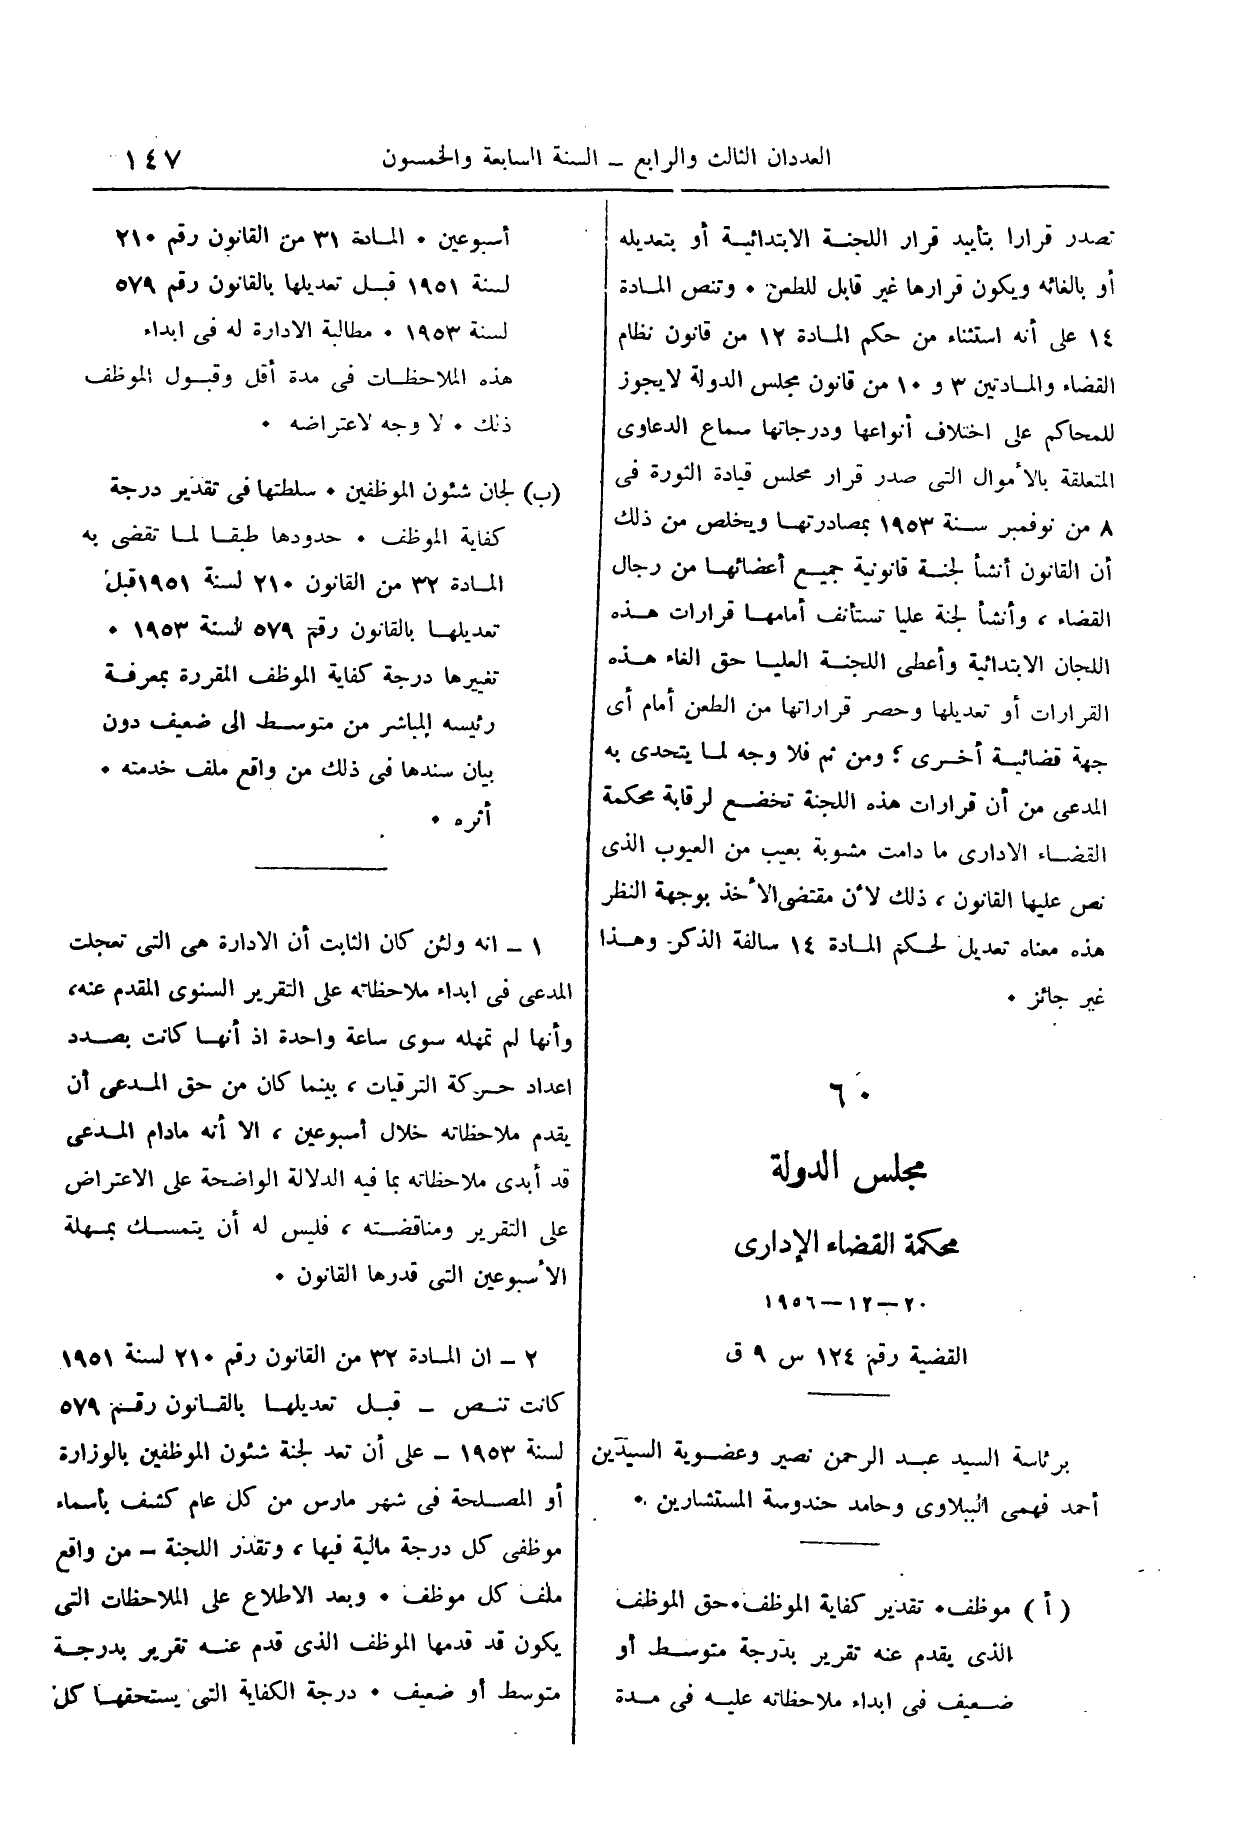 العددان الثالث والرابع – السنة السابعة والخمسون
١٤٧
تصدر قرارا بتأييد قرار اللجنة الابتدائية أو بتعديله
أو بالغائه ويكون قرارها غير قابل للطعن • وتنص المادة
١٤ على أنه استثناء من حكم المادة ١٢ من قانون نظام
القضاء والمادتين ٣ و ١٠ من قانون مجلس الدولة لايجوز
للمحاكم على اختلاف أنواعها ودرجاتها سماع الدعاوى
المتعلقة بالأموال التى صدر قرار مجلس قيادة الثورة فى
٨ من نوفمبر سنة ١٩٥٣ بمصادرتها ويخلص من ذلك
أن القانون أنشأ لجنة قانونية جميع أعضائها من رجال
القضاء ، وأنشأ لجنة عليا تستأنف أمامها قرارات هذه
اللجان الابتدائية وأعطى اللجنة العليا حق الغاء هذه
القرارات أو تعديلها وحصر قراراتها من الطعن أمام أى
جهة قضائية أخرى ؛ ومن ثم فلا وجه لما يتحدى به
المدعى من أن قرارات هذه اللجنة تخضع لرقابة محكمة
القضاء الادارى ما دامت مشوبة بعيب من العيوب الذى
نص عليها القانون ، ذلك لأن مقتضى الأخذ بوجهة النظر
هذه معناه تعديل لحكم المادة ١٤ سالفة الذكر وهذا
غير جائز •
٦٠
مجلس الدولة
محكمة القضاء الإدارى
٢٠ – ١٢ – ١٩٥٦
القضية رقم ١٢٤ س ٩ ق
برئاسة السيد عبد الرحمن نصير وعضوية السيدين
أحمد فهمى الببلاوى وحامد حندوسة المستشارين •
( أ ) موظف • تقدير كفاية الموظف • حق الموظف
الذى يقدم عنه تقرير بدرجة متوسط أو
ضعيف فى ابداء ملاحظاته عليه فى مدة
أسبوعين • المادة ٣١ من القانون رقم ٢١٠
لسنة ١٩٥١ قبل تعديلها بالقانون رقم ٥٧٩
لسنة ١٩٥٣ • مطالبة الادارة له فى ابداء
هذه الملاحظات فى مدة أقل وقبول الموظف
ذلك • لا وجه لاعتراضه •
(ب) لجان شئون الموظفين • سلطتها فى تقدير درجة
كفاية الموظف • حدودها طبقا لما تقضى به
المادة ٣٢ من القانون ٢١٠ لسنة ١٩٥١ قبل
تعديلها بالقانون رقم ٥٧٩ لسنة ١٩٥٣ •
تغييرها درجة كفاية الموظف المقررة بمعرفة
رئيسه المباشر من متوسط الى ضعيف دون
بيان سندها فى ذلك من واقع ملف خدمته •
أثره •
١ – انه ولئن كان الثابت أن الادارة هى التى تعجلت
المدعى فى ابداء ملاحظاته على التقرير السنوى المقدم عنه،
وأنها لم تمهله سوى ساعة واحدة اذ أنها كانت بصدد
اعداد حركة الترقيات ، بينما كان من حق المدعى أن
يقدم ملاحظاته خلال أسبوعين ، الا أنه مادام المدعى
قد أبدى ملاحظاته بما فيه الدلالة الواضحة على الاعتراض
على التقرير ومناقضته ، فليس له أن يتمسك بمهلة
الأسبوعين التى قدرها القانون •
٢ – ان المادة ٣٢ من القانون رقم ٢١٠ لسنة ١٩٥١
كانت تنص – قبل تعديلها بالقانون رقم ٥٧٩
لسنة ١٩٥٣ – على أن تعد لجنة شئون الموظفين بالوزارة
أو المصلحة فى شهر مارس من كل عام كشف بأسماء
موظفى كل درجة مالية فيها ، وتقدر اللجنة – من واقع
ملف كل موظف • وبعد الاطلاع على الملاحظات التى
يكون قد قدمها الموظف الذى قدم عنه تقرير بدرجة
متوسط أو ضعيف • درجة الكفاية التى يستحقها كل